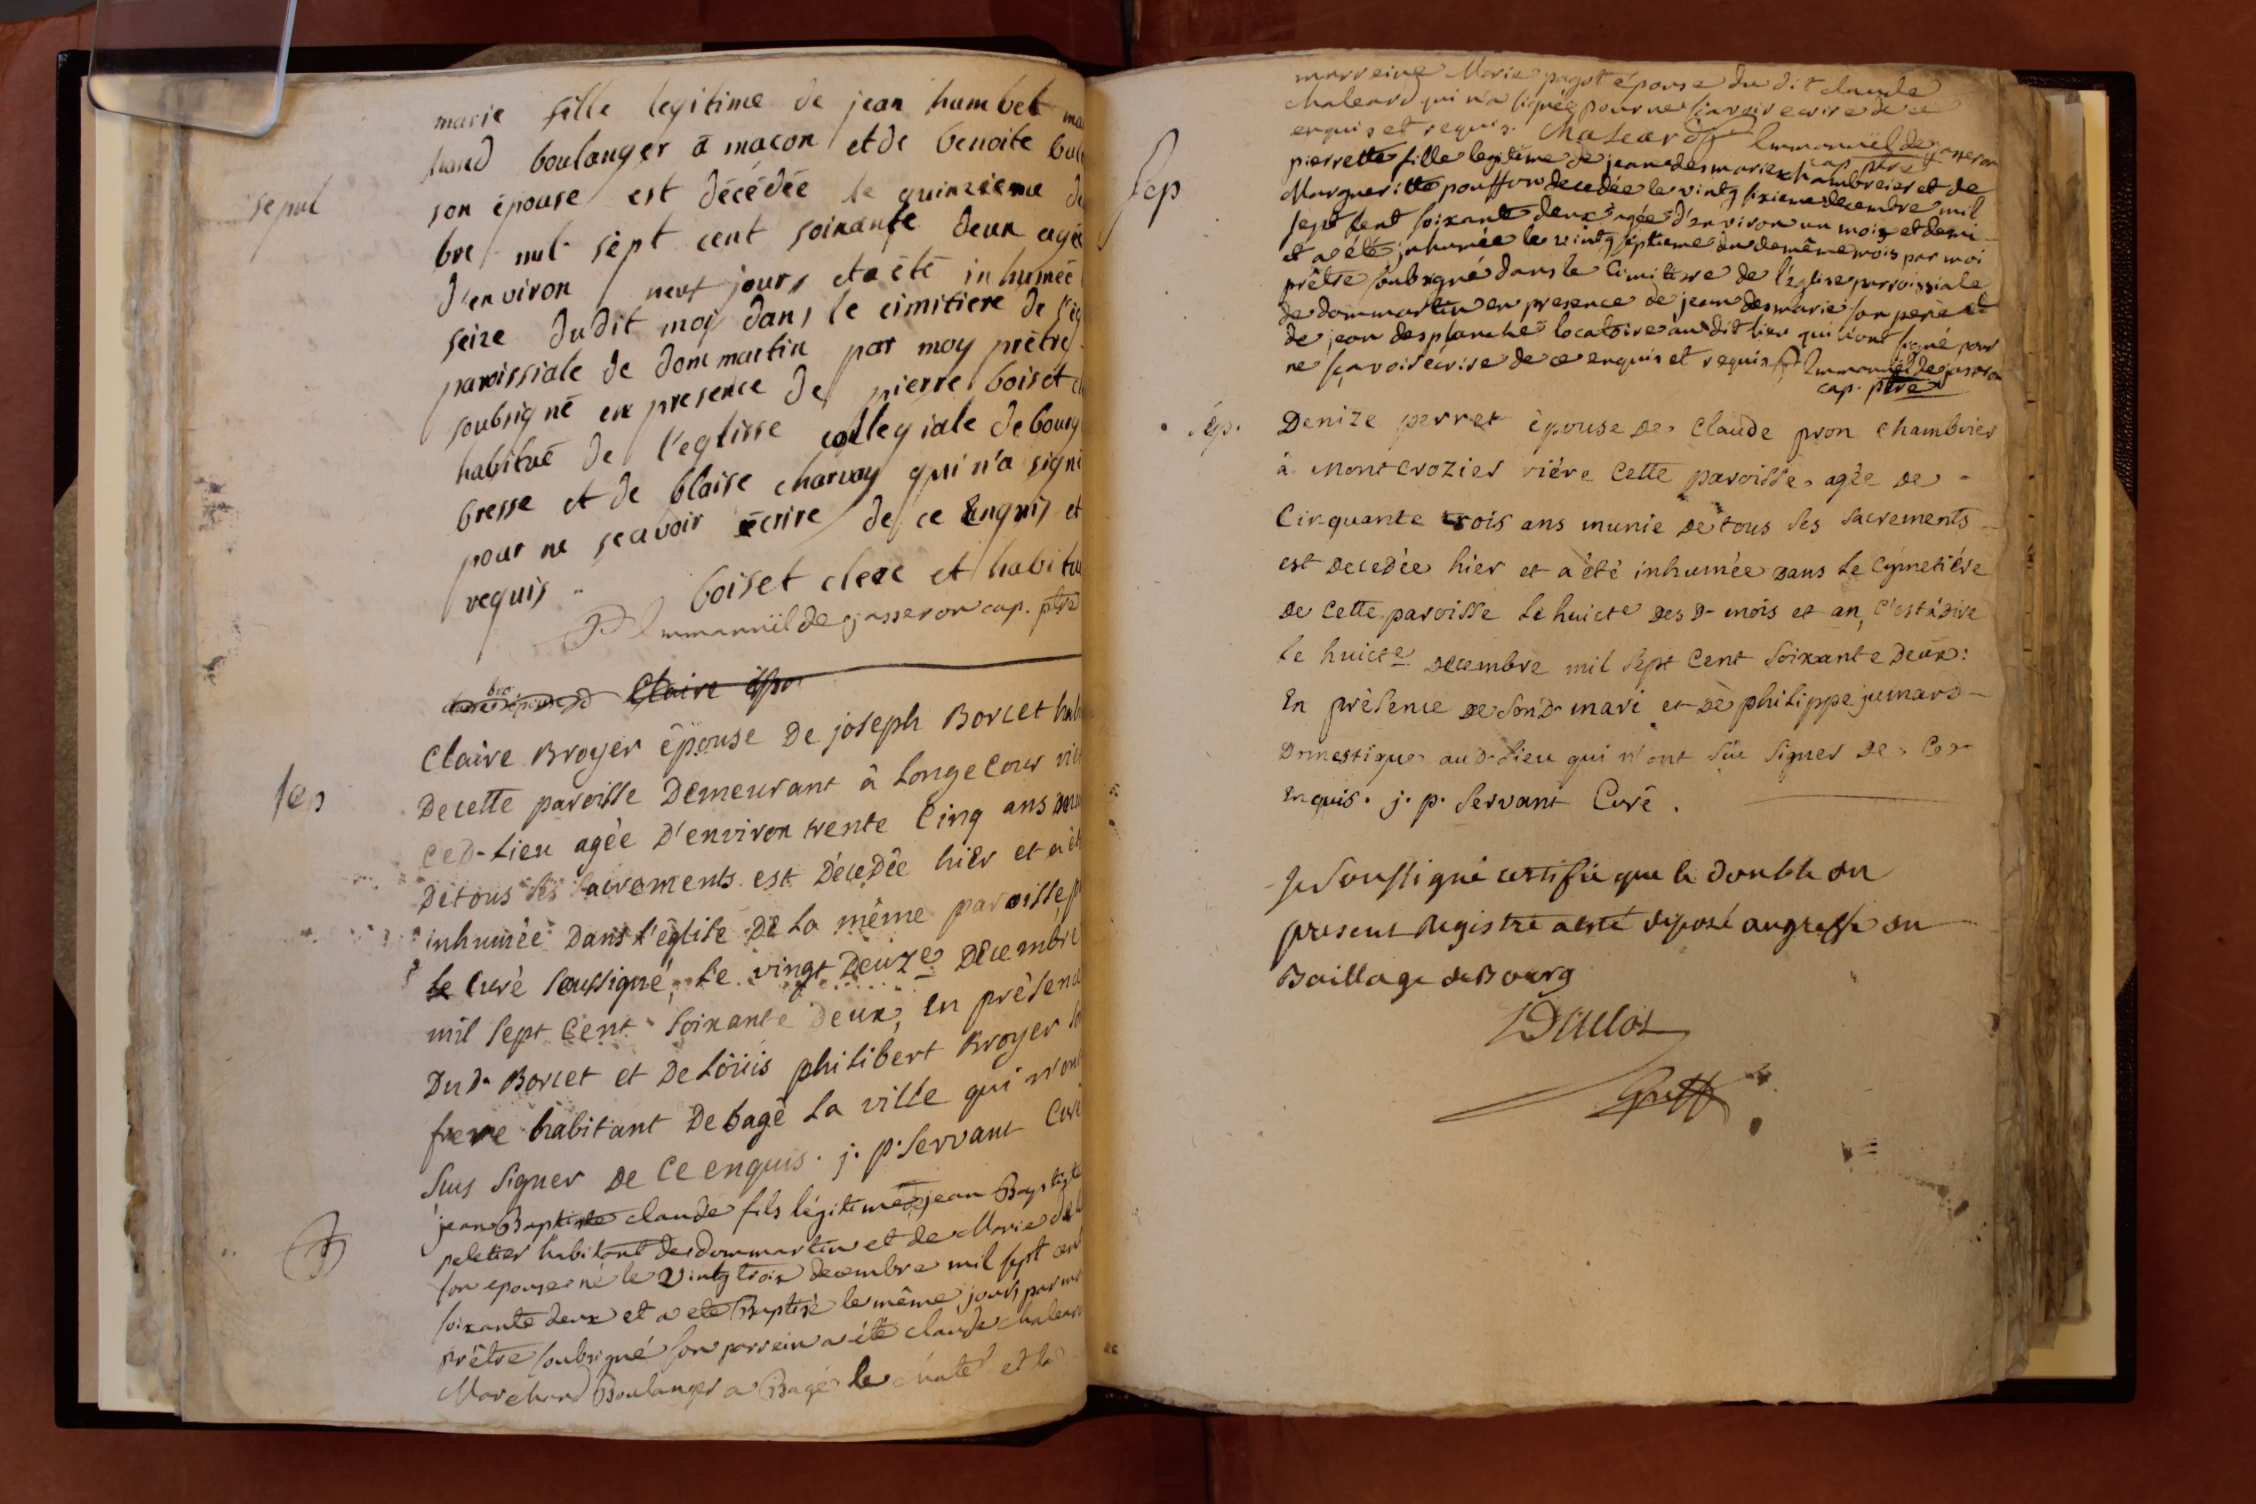 sepul
marie fille legitime de jean humbet
boulanger à macon et de benoite
son épouse est décédée le quinzieme
bre mil sept cent soixante deux agée
d'environ neuf jours et a été inhumée
seize dudit moy dans le cimitiere de
paroissiale de dommartin par moy prètre
soubsigné en presence de pierre boiset
habitué de l'eglisse collegiale de bourg
bresse et de blaise charvay qui n'a signé
pour ne scavoir écrire de ce enquis et
requis
boiset clerc et habitu
Emmanuël de jasseron cap. ptre
Claire
sep
Claire Broyer épouse De joseph Borcet
De cette paroisse Demeurant à Longecour
ce d. Lieu agée D'environ trente Cinq ans
De tous ses sacrements est Décedée hier et a été
inhumée Dans l'église De La même paroisse
Le Curé soussigné, Le vingt Deuxe Décembre
mil sept Cent soixante Deux, En présence
Du d. Borcet et De Loüis philibert Broyer
frere habitant De bagé La ville qui n'ont
sus signer De Ce enquis. j. p. Servant Curé
B
jean Baptiste claude fils légitime de jean Baptiste
peletier habitant de dommartin et de Marie
son epouse né le vintg trois decembre mil sept cent
soixante deux et a eté Baptisé le même jour par
prêtre soubsigné son parrein a été claude chaleard
Marchand Boulanger a Bagé le chatel et la
marreine Marie pagot épouse du dit claude
chaleard qui n'a signée pour ne scavoir ecrire de ce
enquis et requis. Chaleard Emmanuël de jasseron
cap. ptre
Sep
pierrette fille legitime de jean desmarie chambreier et de
Margueritte pouffon decedée le vintg sixieme decembre mil
sept cent soixante deux agée d'environ un mois et demi
et a été inhumée le vintg septieme du même mois par moi
prêtre soubsigné dans le Cimitiere de l'eglise parroissiale
de dommartin en presence de jean desmarie son pere et
de jean desplanche locatoire audit lieu qui n'ont signé pour
ne scavoir ecrire de ce enquis et requis Emmanuël de jasseron
cap. ptre
sép.
Denize perret épouse De Claude pron chambrier
à Montcrozier riére Cette paroisse agée De
Cinquante trois ans munie De tous ses sacrements
est Decedée hier et a été inhumée Dans Le Cymetiére
De Cette paroisse Le huicte Des d. mois et an, C'est à dire
Le huicte Decembre mil sept Cent soixante Deux:
En présence De son d. mari et De philippe jumard
Domestique au d. Lieu qui n'ont sûs signer De Ce
Enquis. j. p. Servant Curé.
Je soussigné certifie que le double du
present Registre a esté deposé au greffe du
Baillage de Bourg
Duclos
Greff